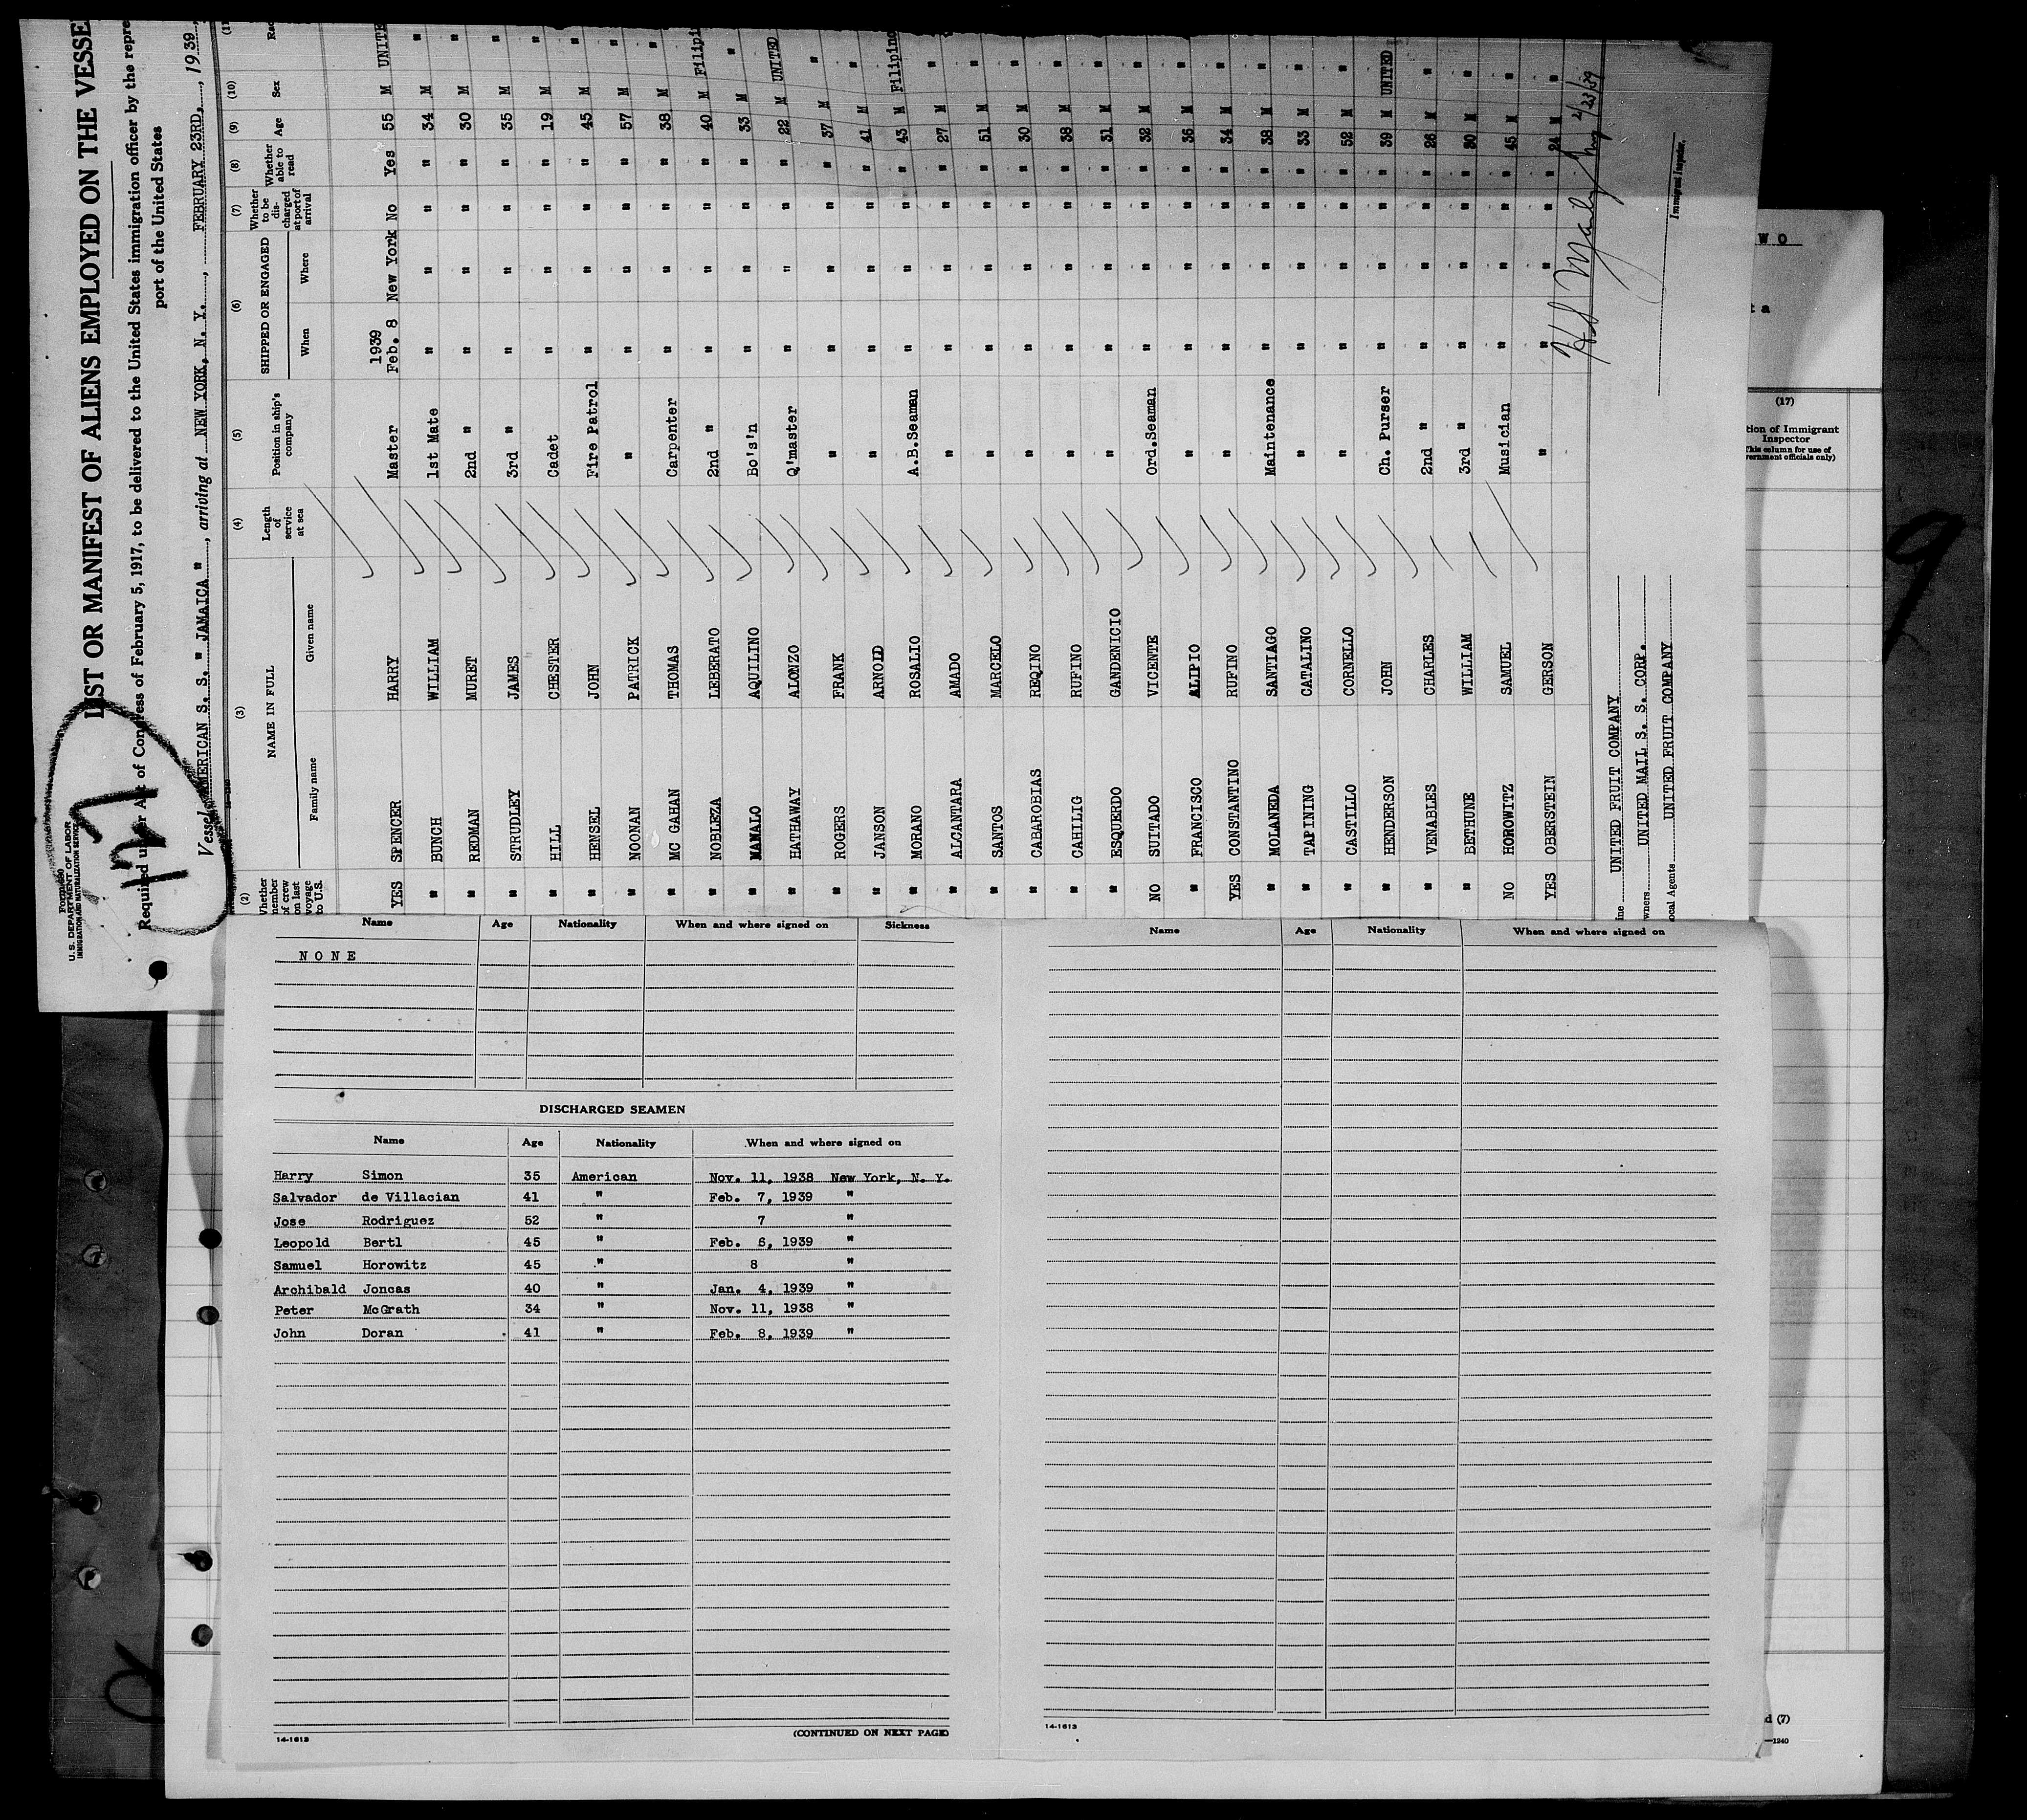 Form 680
U. S. DEPARTMENT OF LABOR
IMMIGRATION AND NATURALIZATION SERVICE
127
LIST OR MANIFEST OF ALIENS EMPLOYED ON THE VESSE
Required under Act of Congress of February 5, 1917, to be delivered to the United States immigration officer by the repre
port of the United States
Vessel AMERICAN S. S. " JAMAICA ", arriving at NEW YORK, N. Y., FEBRUARY 23RD, 1939
(2) (3) (4) (5) (6) (7) (8) (9) (10)
Whether member of crew on last voyage to U.S. NAME IN FULL Family name Given name Length of service at sea Position in ship's company SHIPPED OR ENGAGED When Where Whether to be discharged at port of arrival Whether able to read Age Sex Rac
1939
YES SPENCER HARRY Master Feb. 8 New York No Yes 55 M UNITE
" BUNCH WILLIAM 1st Mate " " " " 34 M "
" REDMAN MURET 2nd " " " " " 30 M "
" STRUDLEY JAMES 3rd " " " " " 35 M "
" HILL CHESTER Cadet " " " " 19 M "
" HENSEL JOHN Fire Patrol " " " " 45 M "
" NOONAN PATRICK " " " " " 57 M "
" MC GAHAN THOMAS Carpenter " " " " 38 M "
" NOBLEZA LEBERATO 2nd " " " " " 40 M Filipi
" MANALO AQUILINO Bo's'n " " " " 33 M "
" HATHAWAY ALONZO Q'master " " " " 22 M UNITED
" ROGERS FRANK " " " " " 37 M "
" JANSON ARNOLD " " " " " 41 M "
" MORANO ROSALIO A.B.Seaman " " " " 43 M Filipino
" ALCANTARA AMADO " " " " " 27 M "
" SANTOS MARCELO " " " " " 51 M "
" CABAROBIAS REQINO " " " " " 30 M "
" CAHILIG RUFINO " " " " " 38 M "
" ESQUERDO GANDENICIO " " " " " 31 M "
NO SUITADO VICENTE Ord.Seaman " " " " 32 M "
" FRANCISCO ALIPIO " " " " " 36 M "
YES CONSTANTINO RUFINO " " " " " 34 M "
" MOLANEDA SANTIAGO Maintenance " " " " 38 M "
" TAPINING CATALINO " " " " " 33 M "
" CASTILLO CORNELLO " " " " " 52 M "
" HENDERSON JOHN Ch. Purser " " " " 39 M UNITED
" VENABLES CHARLES 2nd " " " " " 26 M "
" BETHUNE WILLIAM 3rd " " " " " 30 M "
NO HOROWITZ SAMUEL Musician " " " " 45 M "
YES OBERSTEIN GERSON " " " " " 24 M "
2/23/39
ine UNITED FRUIT COMPANY
wners UNITED MAIL S. S. CORP.
ocal Agents UNITED FRUIT COMPANY
Immigrant Inspector.
W O
t a
(17)
tion of Immigrant
Inspector
This column for use of
vernment officials only)
9
Name Age Nationality When and where signed on Sickness
N O N E
DISCHARGED SEAMEN
Name Age Nationality When and where signed on
Harry Simon 35 American Nov. 11, 1938 New York, N. Y.
Salvador de Villacian 41 " Feb. 7, 1939 "
Jose Rodriguez 52 " 7 "
Leopold Bertl 45 " Feb. 6, 1939 "
Samuel Horowitz 45 " 8 "
Archibald Joncas 40 " Jan. 4, 1939 "
Peter McGrath 34 " Nov. 11, 1938 "
John Doran 41 " Feb. 8, 1939 "
14-1613 (CONTINUED ON NEXT PAGE)
Name Age Nationality When and where signed on
14-1613
d (7)
—1240